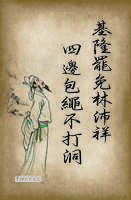 基隆罷免林沛祥
四邊包繩不打洞